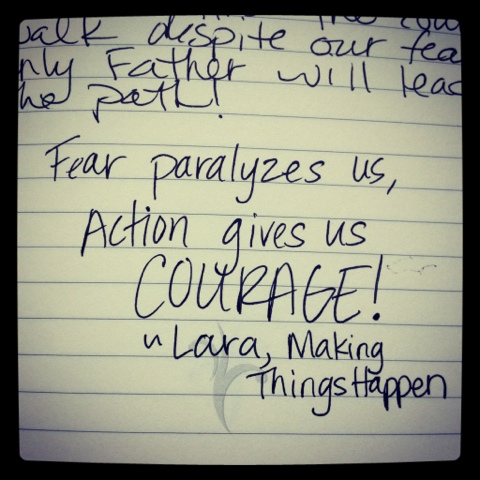 walk despite our fea
nly Father will lead
he path!
Fear paralyzes us,
Action gives us
COURAGE!
~ Lara, Making
Things Happen